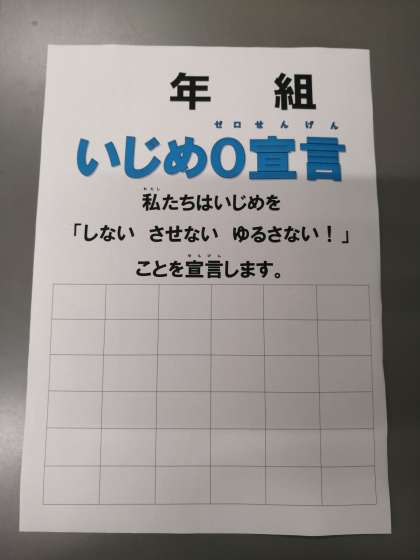 年　組
ゼロせんげん
いじめ0宣言
わたし
私たちはいじめを
「しない　させない　ゆるさない！」
せんげん
ことを宣言します。